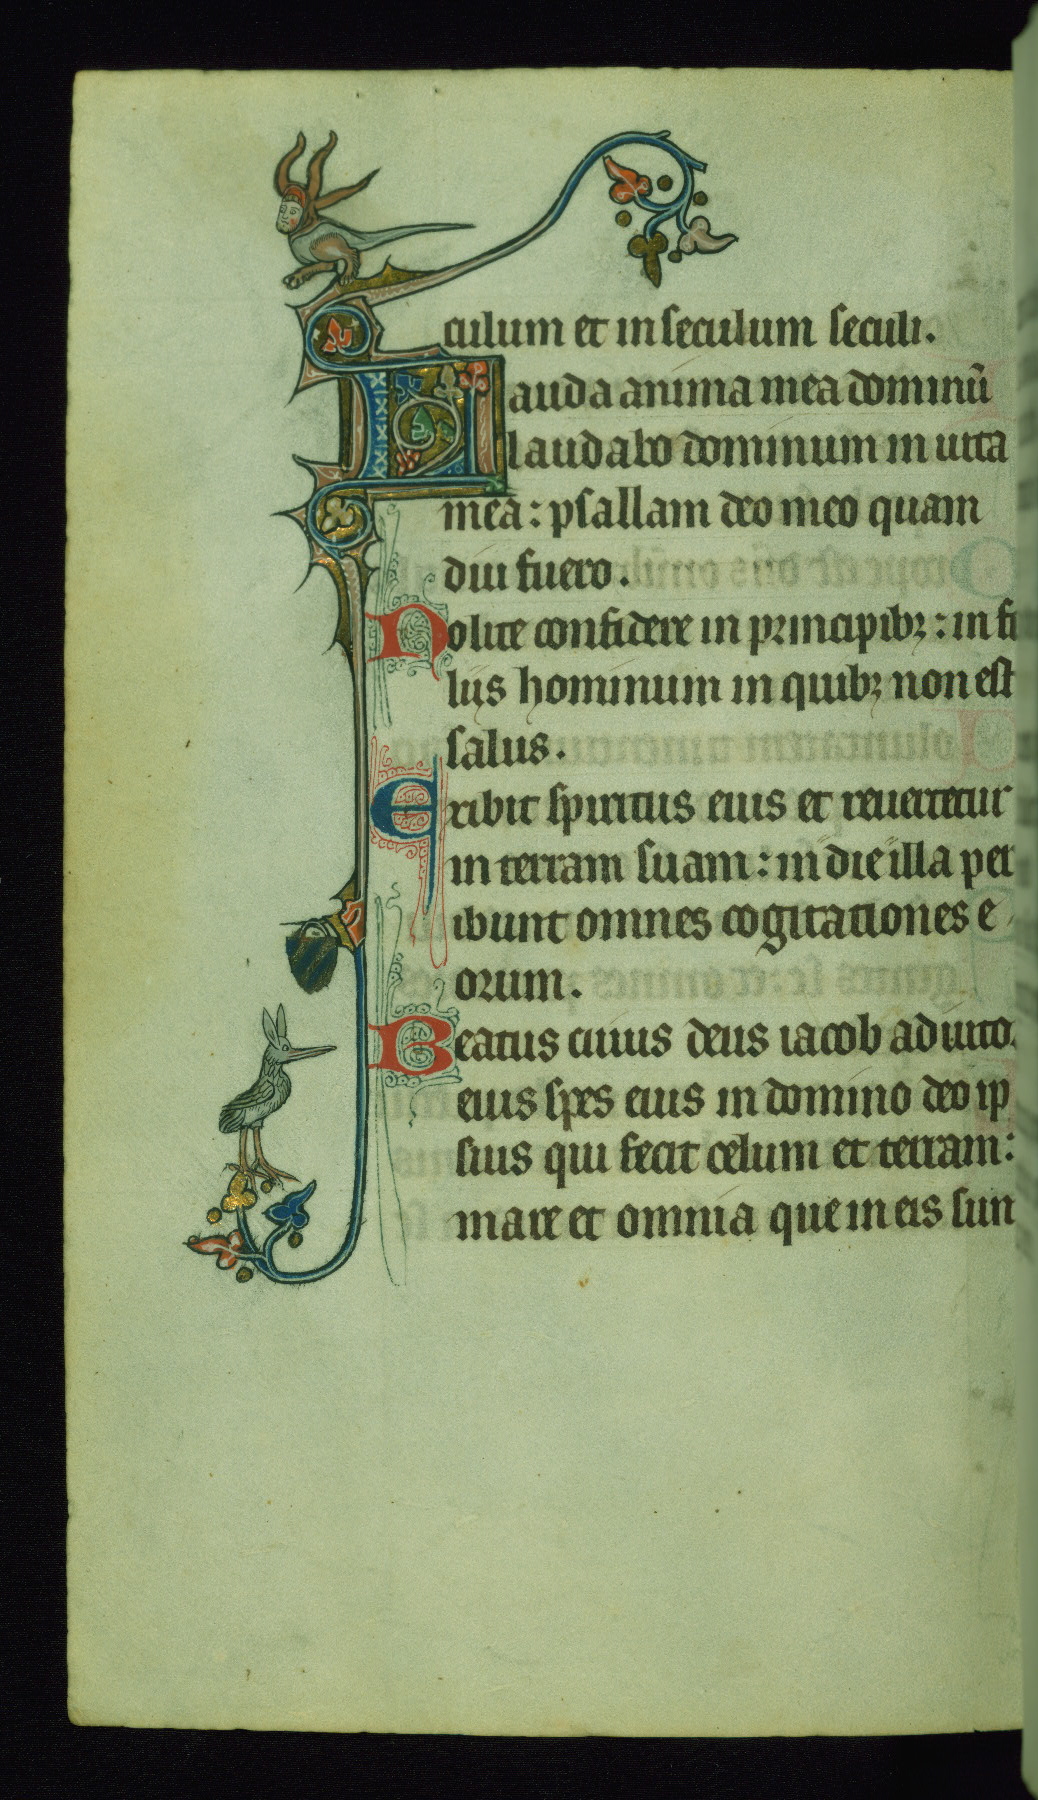 culum et in seculum seculi.
Lauda anima mea dominū
laudabo dominum in uita
mea: psallam deo meo quam
diu fuero.
Nolite confidere in principibꝫ: in fi
lijs hominum in quibꝫ non est
salus.
Exibit spiritus eius et reuertetur
in terram suam: in die illa per
ibunt omnes cogitationes e
orum.
Beatus cuius deus iacob adiuto
eius spes eius in domino deo ip
sius qui fecit celum et terram:
mare et omnia que in eis sun